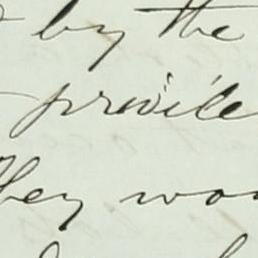 by the
privile
They wou